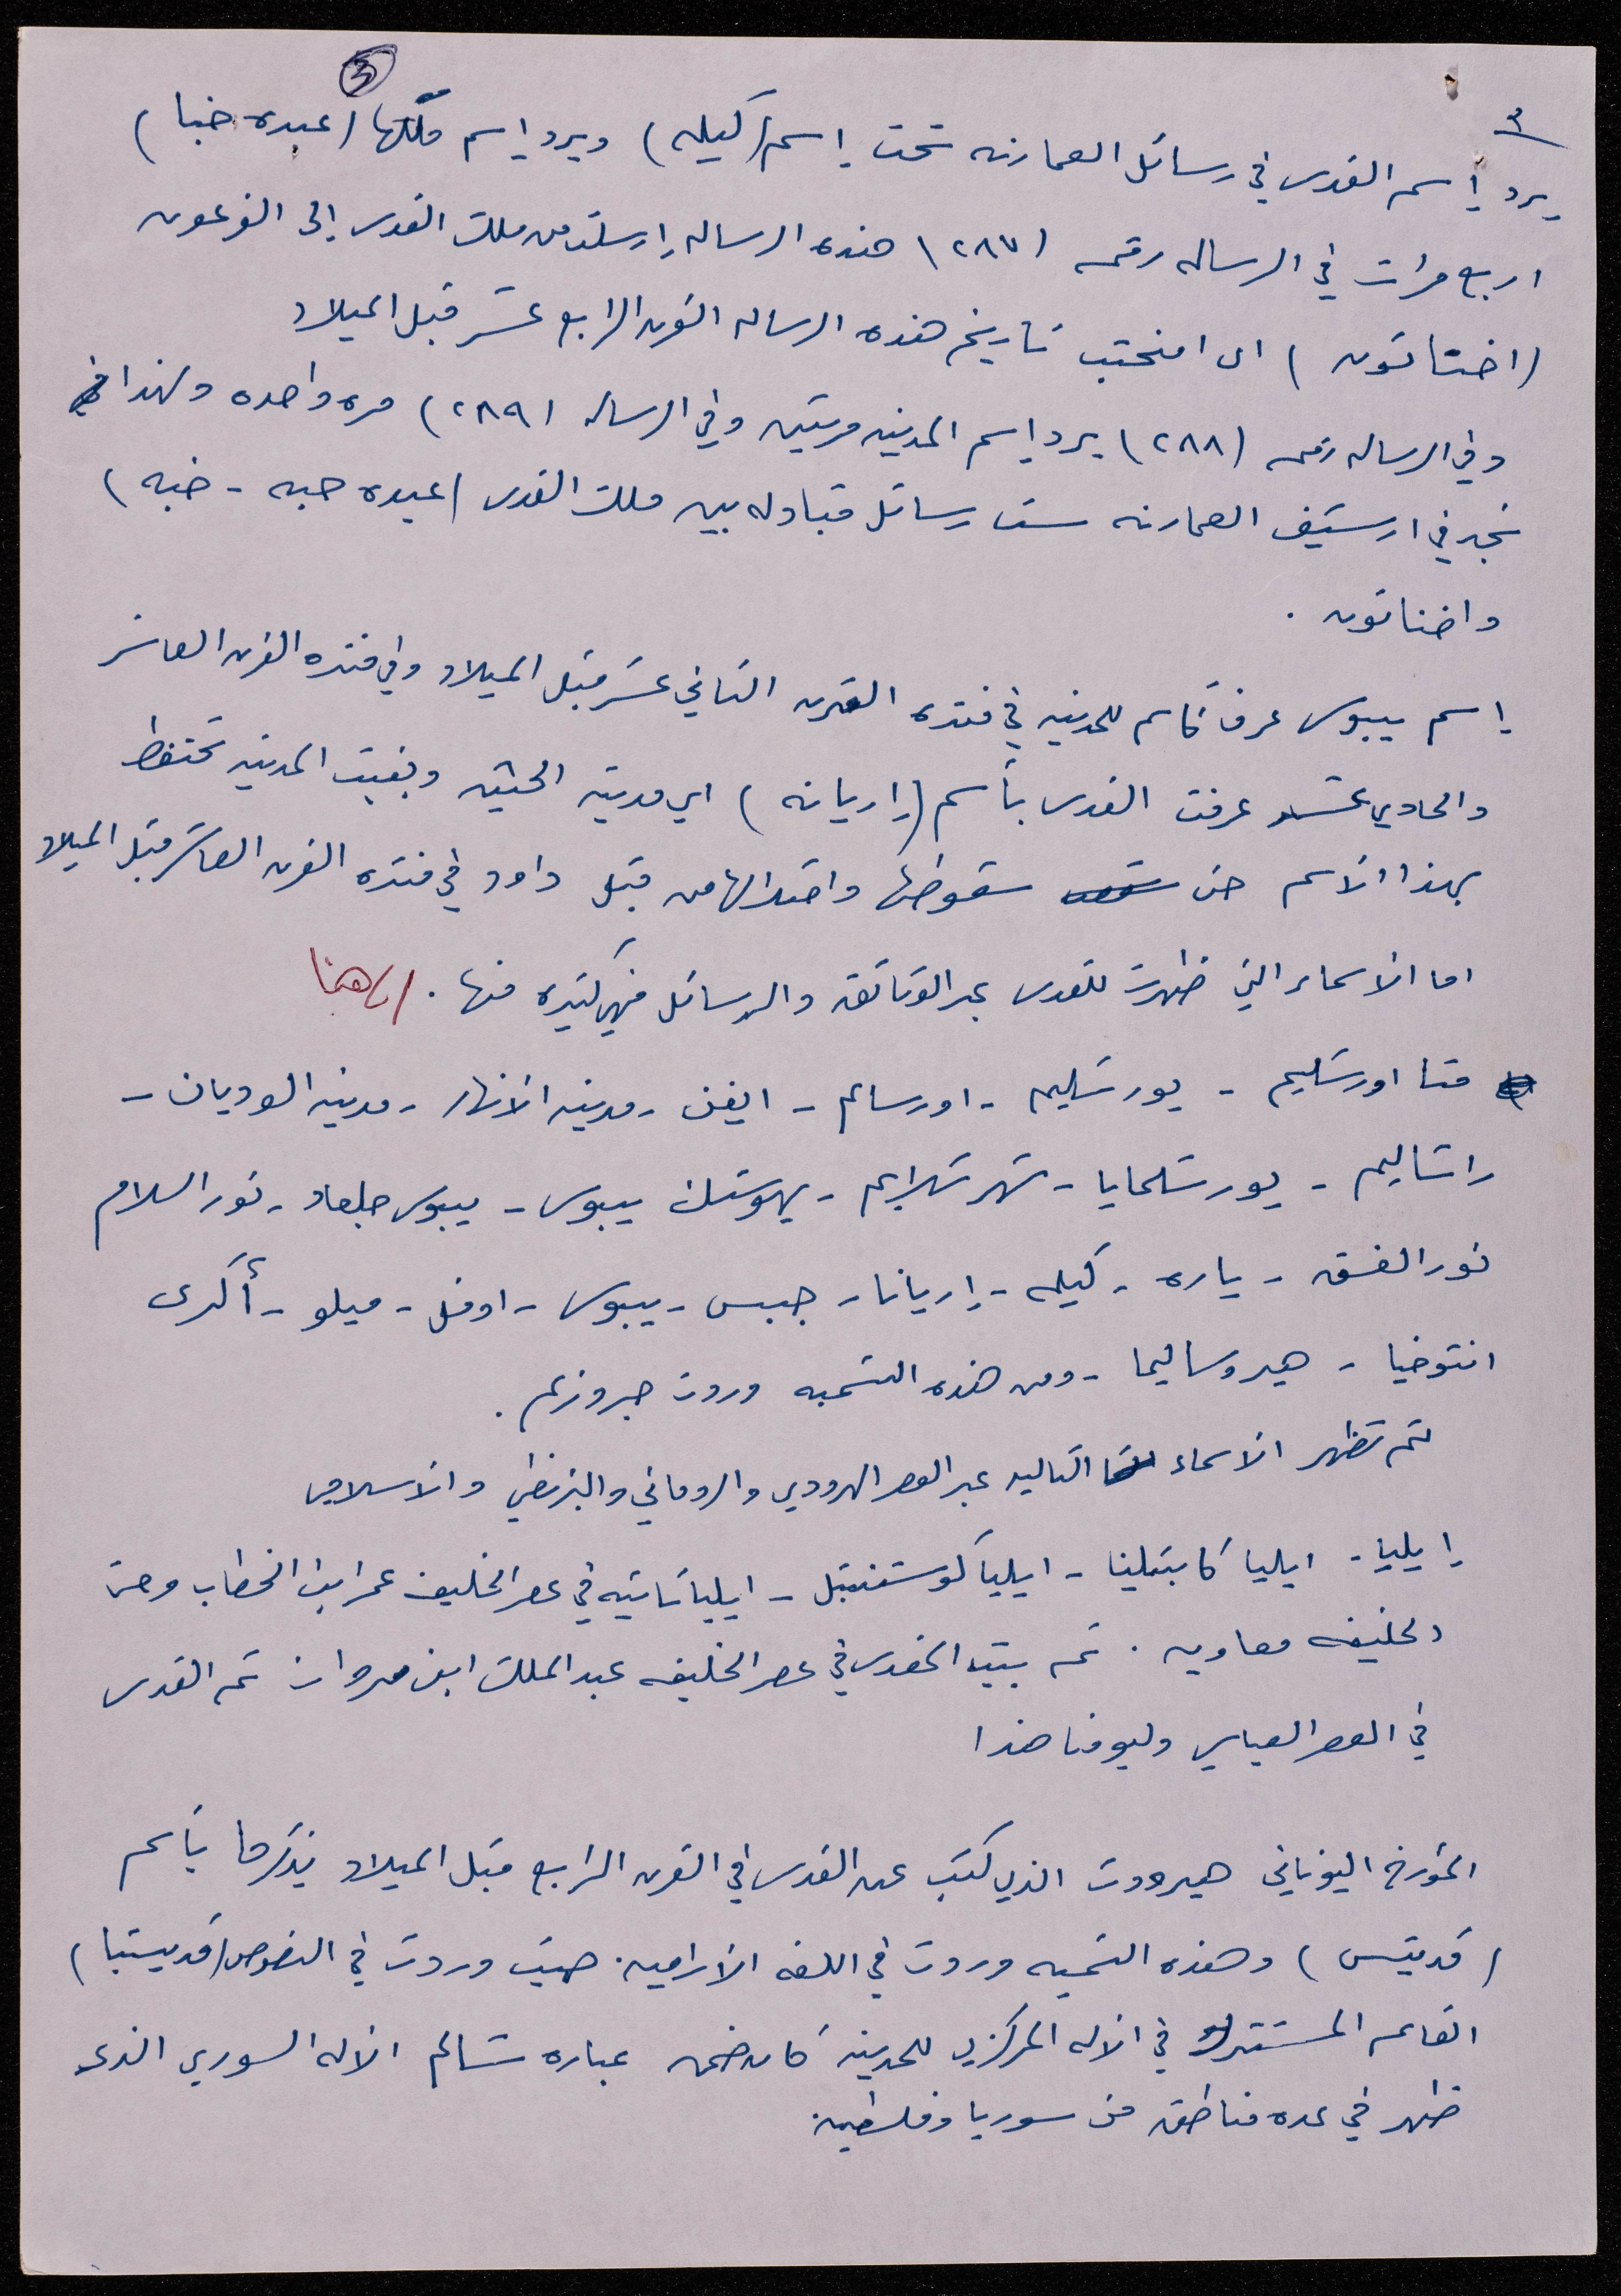 3
٣
يرد إسم القدس في رسائل العمارنه تحت إسم (كيله) ويرد إسم ملكها (عبده خبا)
اربع مرات في الرساله رقم (٢٨٧) هذه الرساله إرسلت من ملك القدس إلى الفرعون
(اخناتون) اى امنحتب تاريخ هذه الرساله القرن الرابع عشر قبل الميلاد
وفي الرساله رقم (٢٨٨) يرد إسم المدينه مرتين وفي الرساله (٢٨٩) مره واحده ولهذا
نجد في ارشيف العمارنه ست رسائل متبادله بين ملك القدس (عبده حبه - خبه)
واخناتون .
إسم يبوس عرف كاسم للمدينه في فتره القرن الثاني عشر قبل الميلاد وفي فتره القرن العاشر
والحادي عشر عرفت القدس بأسم (إاريانه) اي مدينة الحثيين وبقيت المدينه تحتفظ
بهذا الاسم حتى سقوطها واحتلالها من قبل داود في فتره القرن العاشر قبل الميلاد
اما الاسماء التي ظهرت للقدس عبر الوثائق والرسائل فهي كثيره منها . هنا
متا اورشليم - يورشليم - اورسالم - ايفن - مدينه الانهار - مدينه الوديان -
راشاليم - يورشلمايا - شهر شلايم - يهوستك يبوس - يبوس جلعاد - نور السلام
نور الغسق - ياره - كيله - إريانا - جبس - يبوس - اوفل - ميلو - أكرى
انتوخيا - هيروساليما - ومن هذه التسميه وردت جروزلم .
ثم تظهر الاسماء التاليه عبر العصر الهرودي والروماني والبزنطي والاسلامي
إيليا - ايليا كابتلينا - ايليا كوستنتبل - ايليا ثانيه في عصر الخليفه عمر ابن الخطاب وحتى
الخليفه معاويه . ثم بيت المقدس في عصر الخليفه عبد الملك ابن مروان ثم القدس
في العصر العباسي وليومنا هذا
المؤرخ اليوناني هيرودت الذي كتب عن القدس في القرن الرابع قبل الميلاد يذكرها بأسم
(قديتس) وهذه التسميه وردت في اللغه الاراميه . حيث وردت في النصوص (قديستبا)
القاسم المشترك في الاله المركزي للمدينه كان ضمن عباره شالم الاله السوري الذى
ظهر في عده مناطق من سوريا وفلسطين